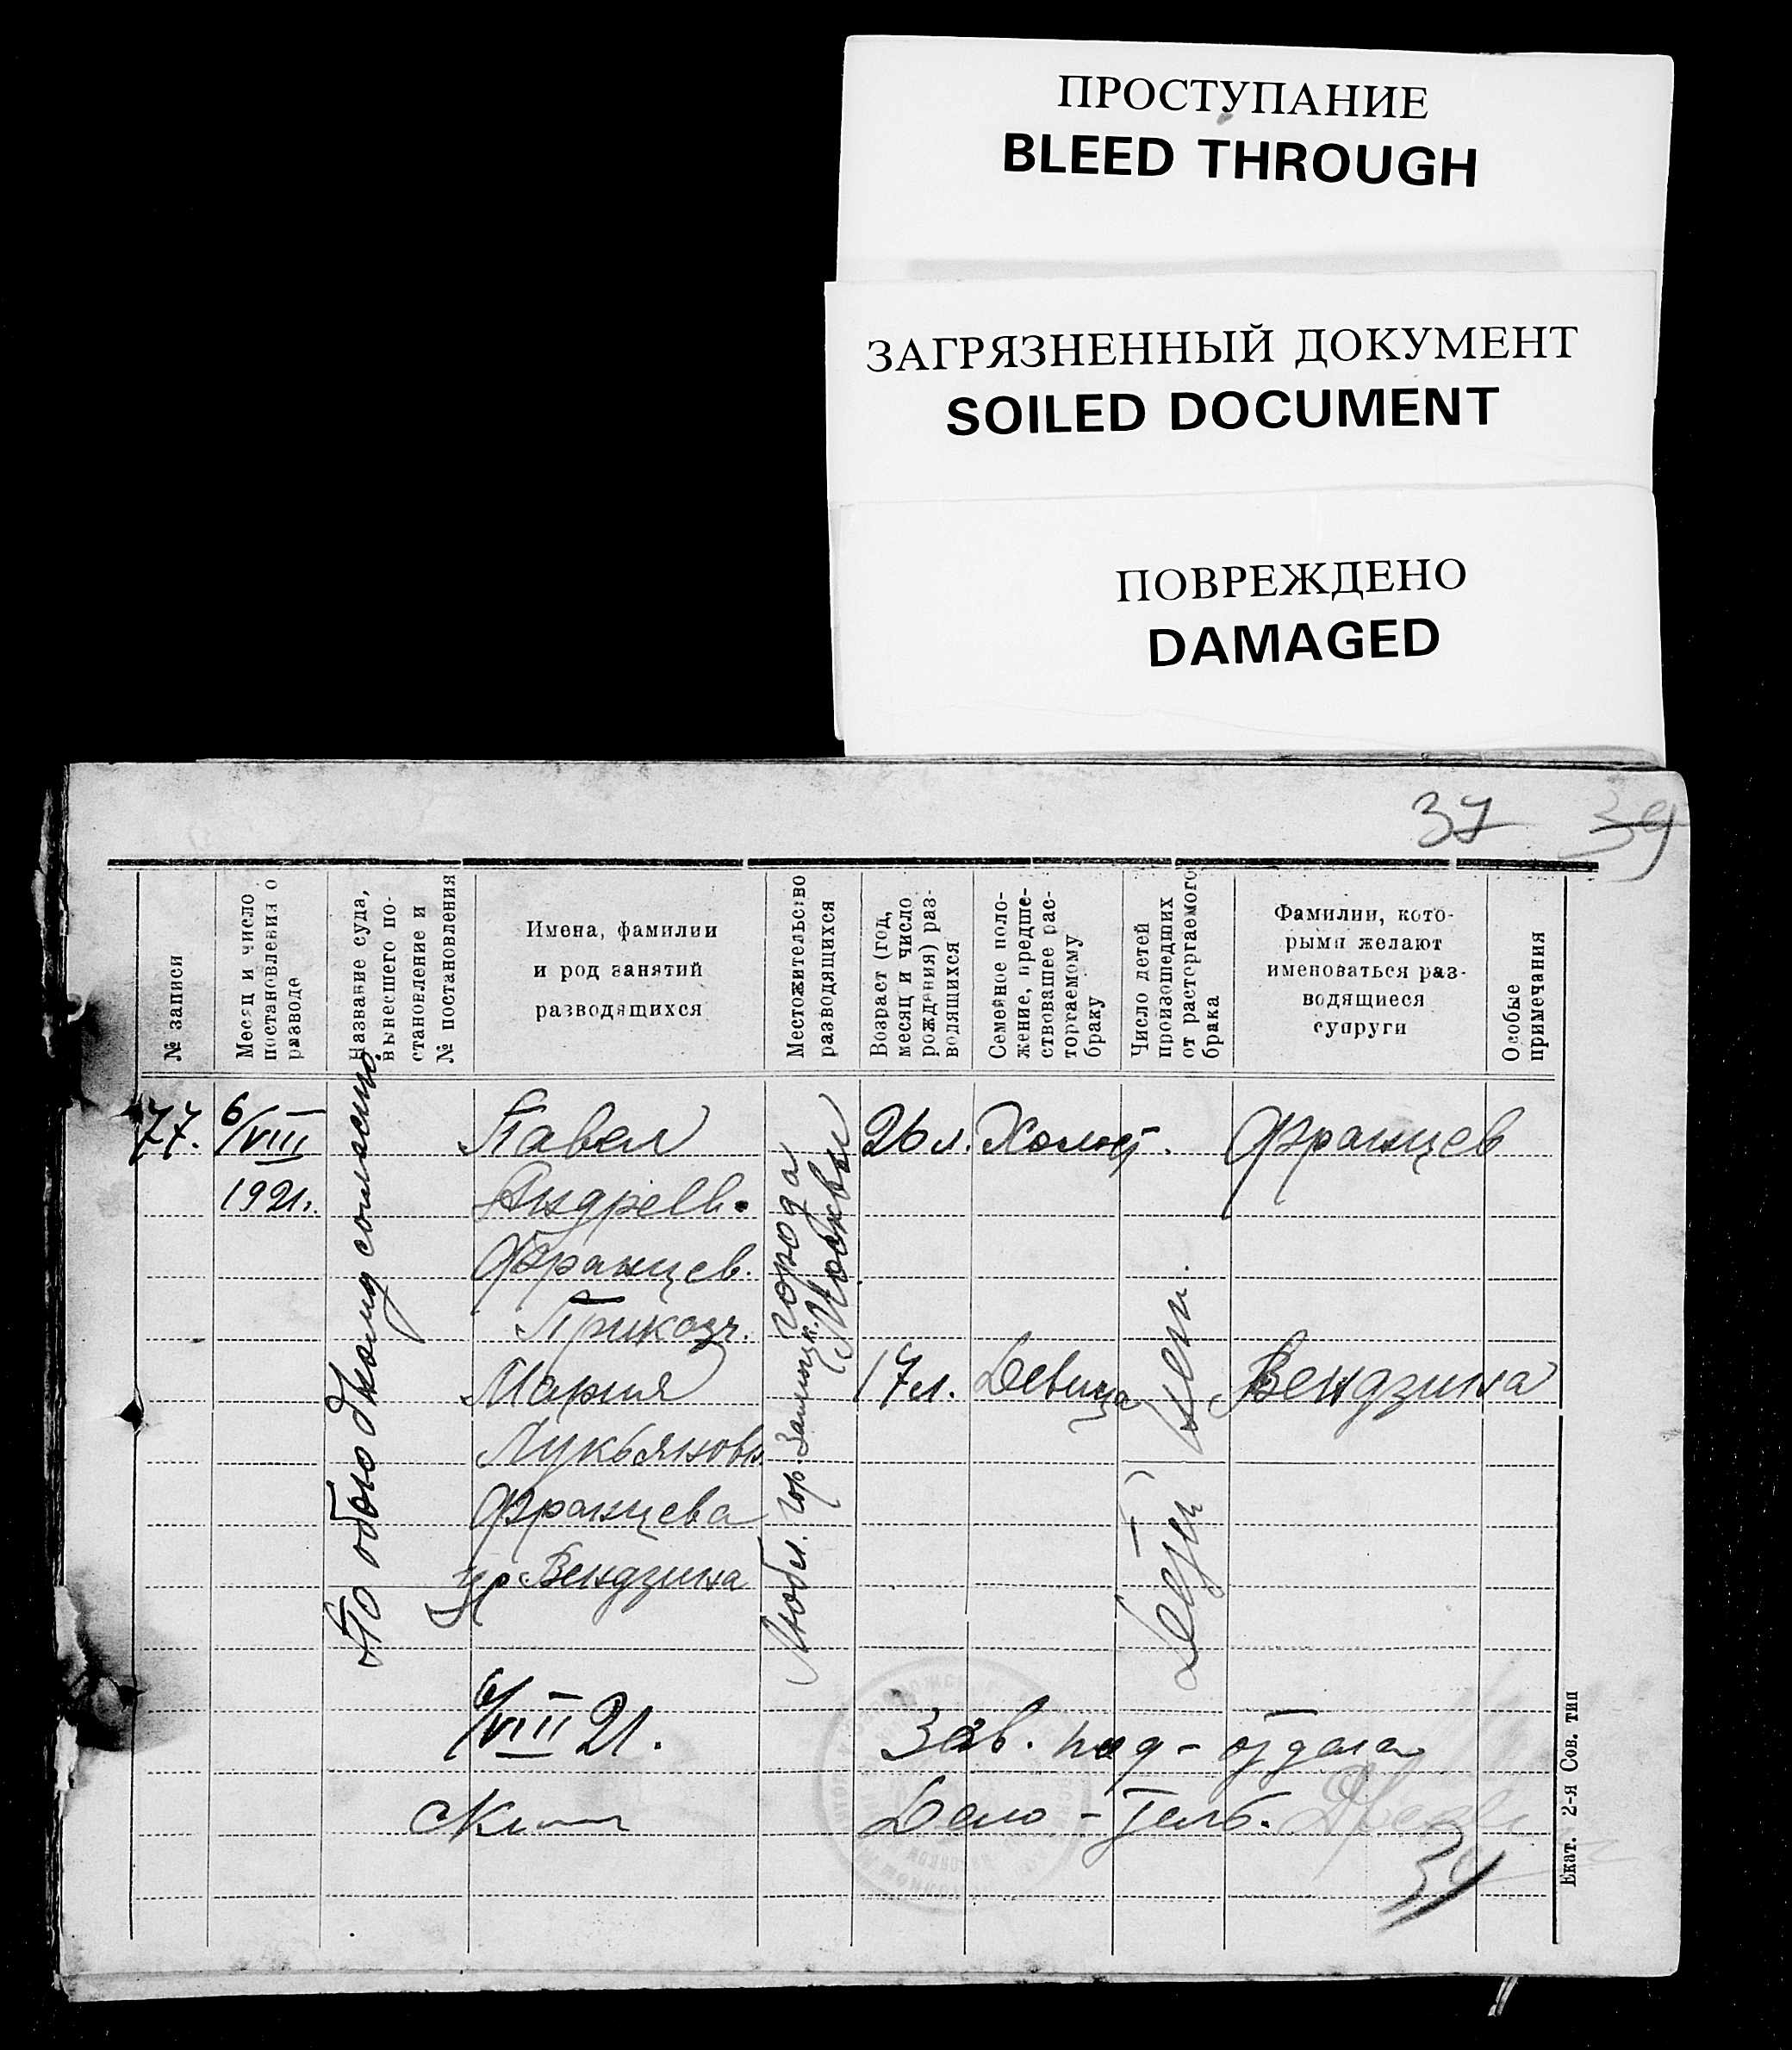 ПРОСТУПАНИЕ
BLEED THROUGH
ЗАГРЯЗНЕННЫЙ ДОКУМЕНТ
SOILED DOCUMENT
ПОВРЕЖДЕНО
DAMAGED
37 39
№ записи
Месяц и число
постановления о
разводе
Название суда,
вынесшего по-
становление и
№ постановления
Имена, фамилии
и род занятий
разводящихся
Местожительство
разводящихся
Возраст (год,
месяц и число
рождения) раз-
водящихся
Семейное поло-
жение, предше-
ствовавшее рас-
торгаемому
браку
Число детей
происшедших
от расторгаемого
брака
Фамилии, кото-
рыми желают
именоваться раз-
водящиеся
супруги
Особые
примечания
77.
6/VIII
1921.
По обоюдному согласию.
Павел
Андреев.
Францев.
Приказч.
Мария
Лукьяновн
Францева
ур Вендзина
города
Москвы
26 л.
Холост.
Францев
17 л.
Девица
Детей нет.
Вендзина
6/VIII 21.
Зав. под-отдела
Дело-тель.
34
Екат. 2-я Сов. тип